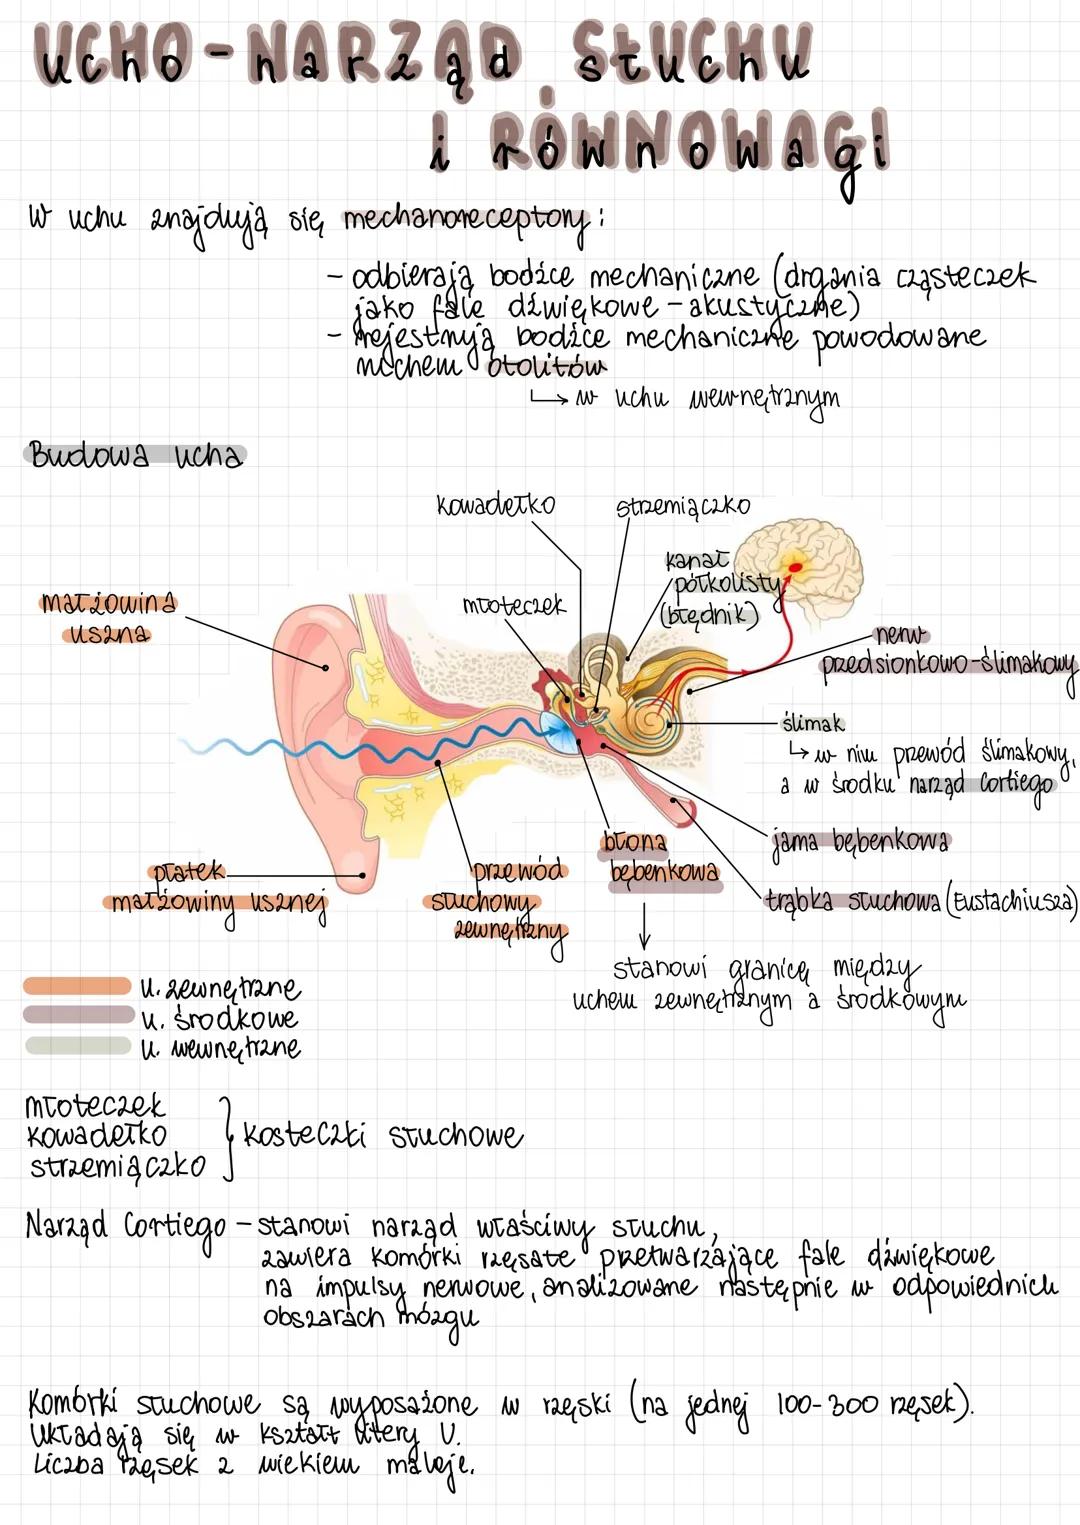 UCHO-NARZĄD SŁUCHU
i RÓWNOWAGI
W uchu znajdują się mechanoreceptory:
- odbierają bodźce mechaniczne (drgania cząsteczek
jako fale dźwiękowe - akustyczne)
- rejestrują bodźce mechaniczne powodowane
ruchem otolitów
↳ w uchu wewnętrznym
Budowa ucha
kowadełko
strzemiączko
kanał
półkolisty
(błędnik)
małżowina
uszna
młoteczek
nerw
przedsionkowo-ślimakowy
ślimak
↳ w niu przewód ślimakowy,
a w środku narząd Cortiego
błona
bębenkowa
jama bębenkowa
płatek
małżowiny usznej
przewód
słuchowy
zewnętrzny
trąbka słuchowa (Eustachiusza)
stanowi granicę między
uchem zewnętrznym a środkowym
u. zewnętrzne
u. środkowe
u. wewnętrzne
młoteczek
kowadełko
strzemiączko
kosteczki słuchowe
Narząd Cortiego - stanowi narząd właściwy słuchu,
zawiera komórki rzęsate przetwarzające fale dźwiękowe
na impulsy nerwowe, analizowane następnie w odpowiednich
obszarach mózgu
Komórki słuchowe są wyposażone w rzęski (na jednej 100-300 rzęsek).
Układają się w kształt litery U.
Liczba rzęsek z wiekiem maleje.